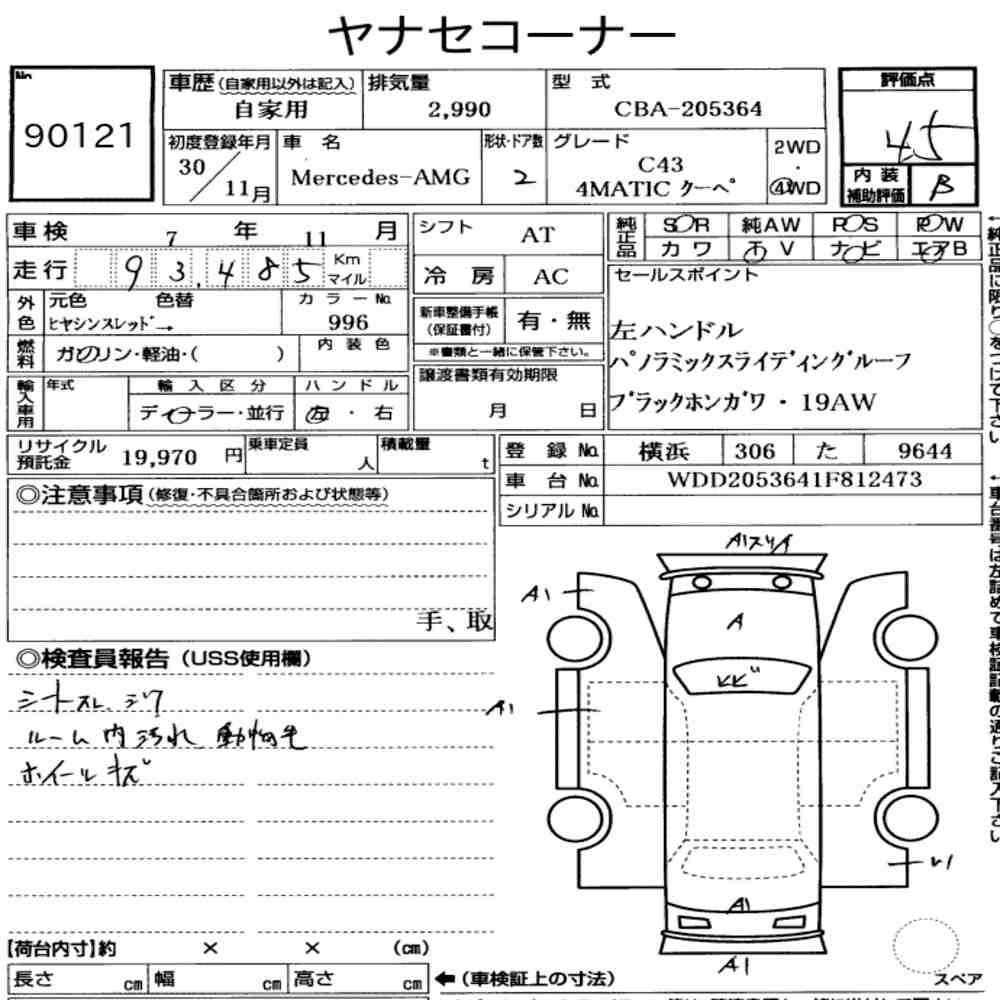 ヤナセコーナー
No.
90121
車歴 (自家用以外は記入) 排気量 型 式 評価点
自家用 2,990 CBA-205364 4.5
初度登録年月 車 名 形状・ドア数 グレード 2WD
30/11月 Mercedes-AMG 2 C43 4MATIC クーペ ・ 4WD
内装補助評価 B
車検 7 年 11 月 シフト AT 純正品 SOR 純AW POS POW
カワ TV ナビ エアB
走行 93,485 Km マイル 冷 房 AC セールスポイント
外色 元色 色替 カラーNo. 新車整備手帳(保証書付) 有・無
ヒヤシンスレッド→ 996 ※書類と一緒に保管下さい。
左ハンドル
パノラミックスライディングルーフ
ブラックホンガワ・19AW
燃料 ガソリン・軽油・( ) 内装色
譲渡書類有効期限
月 日
輸入車用 年式 輸入区分 ハンドル
ディーラー・並行 左・右
リサイクル預託金 19,970 円 乗車定員 人 積載量 t
登録No. 横浜 306 た 9644
車台No. WDD2053641F812473
シリアルNo.
◎注意事項(修復・不具合箇所および状態等)
手、取
◎検査員報告(USS使用欄)
シートスレ、シワ
ルーム内汚れ 動物毛
ホイールキズ
A1スリキ
A1
A
ヒビ
A1
A1
A1
スペア
【荷台内寸】約 × × (cm)
長さ cm 幅 cm 高さ cm
←(車検証上の寸法)
←純正品に限り○をつけて下さい
←車台番号は左詰めて車検証記載の通りご記入下さい